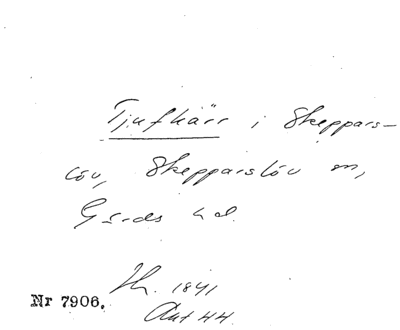 Tjufkärr i Skeppars-
löv, Skepparslöv sn,
Gärds hd.
1841
Nr 7906.
Ant 44